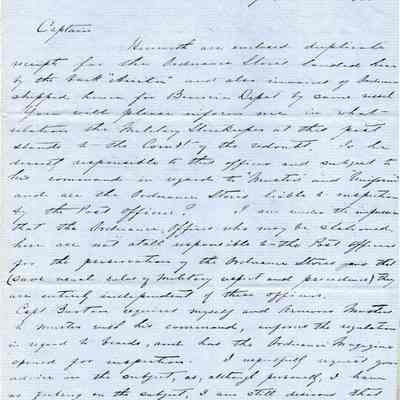 Captain
Herewith are enclosed duplicate
receipt for the Ordnance Stores landed here
by the Bark and also invoices of Ordnance
shipped hence for Benicia Depot by same vessel
You will please inform me in what
relation the Military Storekeeper at this post
stands to the Comdt of the redoubt. Is he
directly responsible to this officer and subject to
his command in regards to "Musters and Uniform"
and are the Ordnance Stores liable to inspection
by the Post Officer? I am under the impression
that the Ordnance Officers who may be stationed
here are not at all responsible to the Post Officers
for the preservation of the Ordnance Stores and that
(save usual rules of Military respect and precedence) they
are entirely independent of these officers.
Capt Burton requires myself and Armorer Musters
to muster with his command, enforces the regulation
in regard to beards, and has the Ordnance Magazine
opened for inspection. I respectfully request your
advice on the subject, as, although personally, I have
no feeling on the subject, I am still desirous that